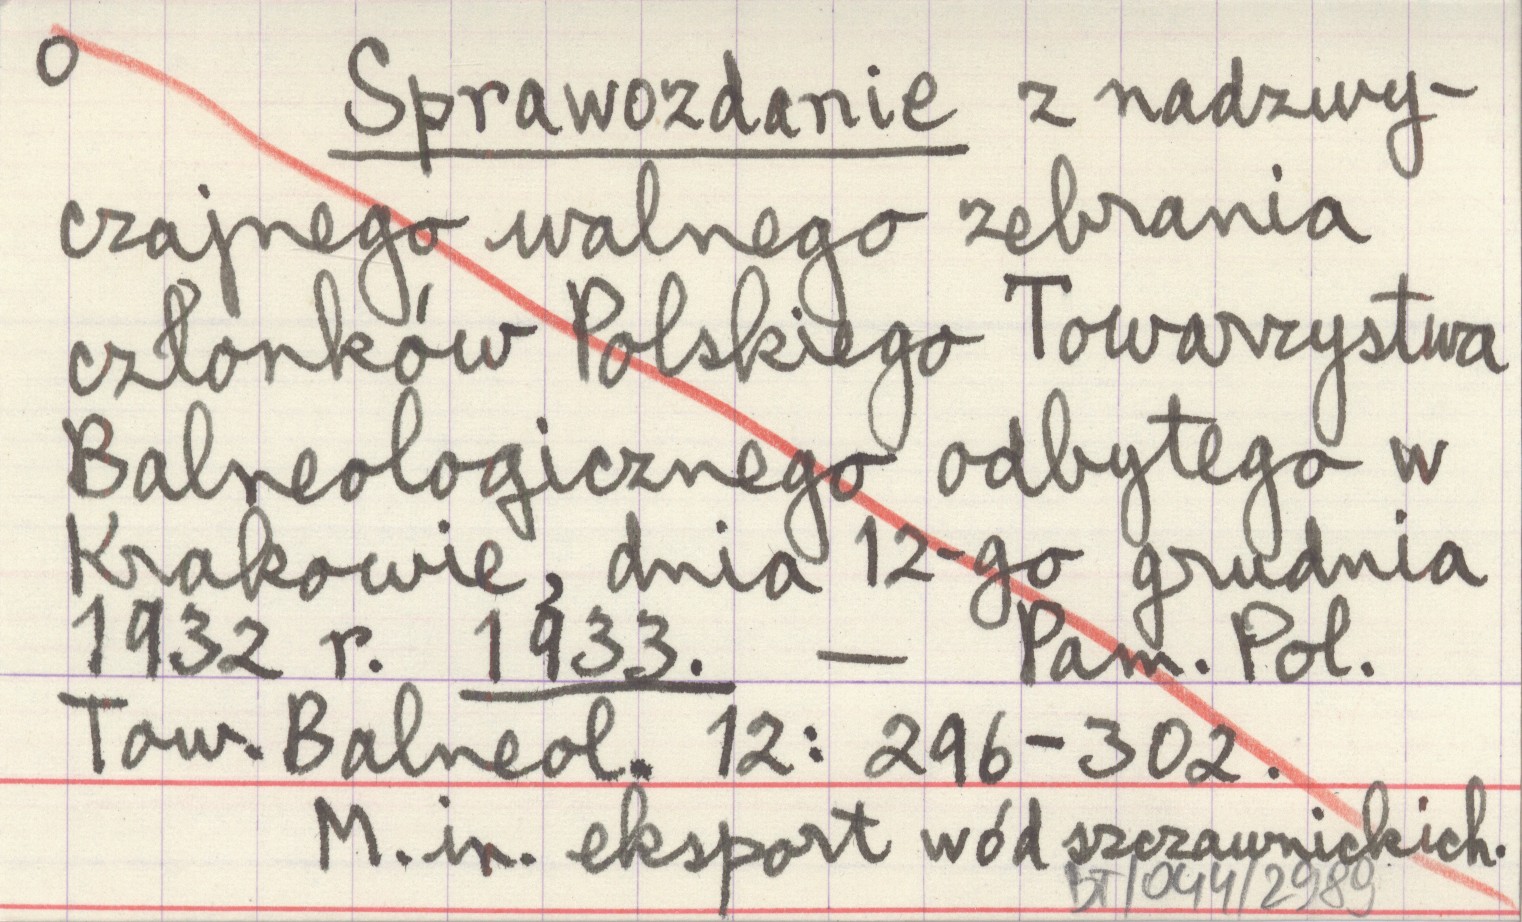 o Sprawozdanie z nadzwy-
czajnego walnego zebrania
członków Polskiego Towarzystwa
Balneologicznego odbytego w
Krakowie, dnia 12-go grudnia
1932 r. 1933. — Pam. Pol.
Tow. Balneol. 12: 296-302.
M. in. eksport wód szczawnickich.
BT/044/2989